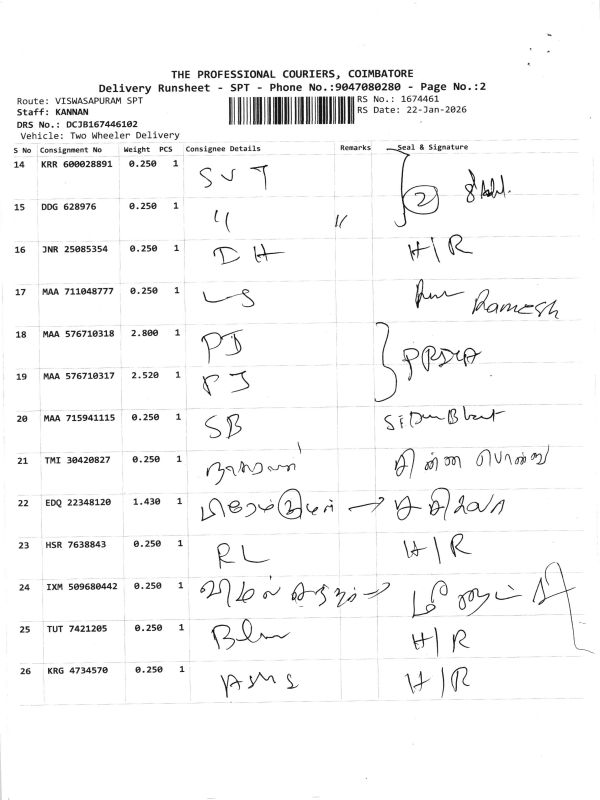 THE PROFESSIONAL COURIERS, COIMBATORE
Delivery Runsheet - SPT - Phone No.:9047080280 - Page No.:2
Route: VISWASAPURAM SPT
RS No.: 1674461
Staff: KANNAN
RS Date: 22-Jan-2026
DRS No.: DCJB167446102
Vehicle: Two Wheeler Delivery
S No Consignment No Weight PCS Consignee Details Remarks Seal & Signature
14 KRR 600028891 0.250 1 SVT 2
15 DDG 628976 0.250 1 " "
16 JNR 25085354 0.250 1 DH H/R
17 MAA 711048777 0.250 1 LS Ramesh
18 MAA 576710318 2.800 1 PJ
19 MAA 576710317 2.520 1 PJ
20 MAA 715941115 0.250 1 SB
21 TMI 30420827 0.250 1 சின்ன பொண்ணு
22 EDQ 22348120 1.430 1 →
23 HSR 7638843 0.250 1 RL H/R
24 IXM 509680442 0.250 1 →
25 TUT 7421205 0.250 1 H/R
26 KRG 4734570 0.250 1 H/R